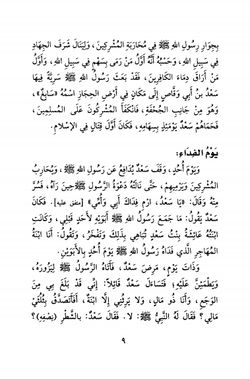 بِجِوَارِ رَسُولِ اللهِ ﷺ فِي مُحَارَبَةِ المُشْرِكِينَ، وَلِيَنَالَ شَرَفَ الجِهَادِ
فِي سَبِيلِ اللهِ، وَحَسْبُهُ أَنَّهُ أَوَّلُ مَنْ رَمَى بِسَهْمٍ فِي سَبِيلِ اللهِ، وَأَوَّلُ
مَنْ أَرَاقَ دِمَاءَ الكَافِرِينَ، فَقَدْ بَعَثَ رَسُولُ اللهِ ﷺ سَرِيَّةً فِيهَا
سَعْدُ بنُ أَبِي وَقَّاصٍ إِلَى مَكَانٍ فِي أَرْضِ الحِجَازِ اسْمُهُ «سَابِغُ»،
وَهُوَ مِنْ جَانِبِ الجُحْفَةِ، فَانْكَفَأَ المُشْرِكُونَ عَلَى المُسْلِمِينَ،
فَحَمَاهُمْ سَعْدٌ يَوْمَئِذٍ بِسِهَامِهِ، فَكَانَ أَوَّلَ قِتَالٍ فِي الإِسْلَامِ.
يَوْمُ الفِدَاءِ:
وَيَوْمَ أُحُدٍ، وَقَفَ سَعْدٌ يُدَافِعُ عَن رَسُولِ اللهِ ﷺ، وَيُحَارِبُ
المُشْرِكِينَ وَيَرْمِيهِمْ، حَتَّى نَالَتْهُ دَعْوَةُ الرَّسُولِ ﷺ حِينَ رَآهُ، فَسُرَّ
مِنْهُ وَقَالَ: «يَا سَعْدُ، ارْمِ فِدَاكَ أَبِي وَأُمِّي» [متفق عليه]. فَكَانَ
سَعْدٌ يَقُولُ: مَا جَمَعَ رَسُولُ اللهِ ﷺ أَبَوَيْهِ لأَحَدٍ قَبْلِي، وَكَانَتِ
ابْنَتُهُ عَائِشَةُ بِنْتُ سَعْدٍ تُبَاهِي بِذَلِكَ وَتَفْخَرُ، وَتَقُولُ: أَنَا ابْنَةُ
المُهَاجِرِ الَّذِي فَدَاهُ رَسُولُ اللهِ ﷺ يَوْمَ أُحُدٍ بِالأَبَوَيْنِ.
وَذَاتَ يَوْمٍ، مَرِضَ سَعْدٌ، فَأَتَاهُ الرَّسُولُ ﷺ لِيَزُورَهُ،
وَيَطْمَئِنَّ عَلَيْهِ، فَتَسَاءَلَ سَعْدٌ قَائِلاً: إِنِّي قَدْ بَلَغَ بِي مِنَ
الوَجَعِ، وَأَنَا ذُو مَالٍ، وَلَا يَرِثُنِي إِلَّا ابْنَةٌ، أَفَأَتَصَدَّقُ بِثُلُثَيْ
مَالِي؟ فَقَالَ لَهُ النَّبِيُّ ﷺ: لا. فَقَالَ سَعْدٌ: بِالشَّطْرِ (نِصْفِهِ)؟
٩